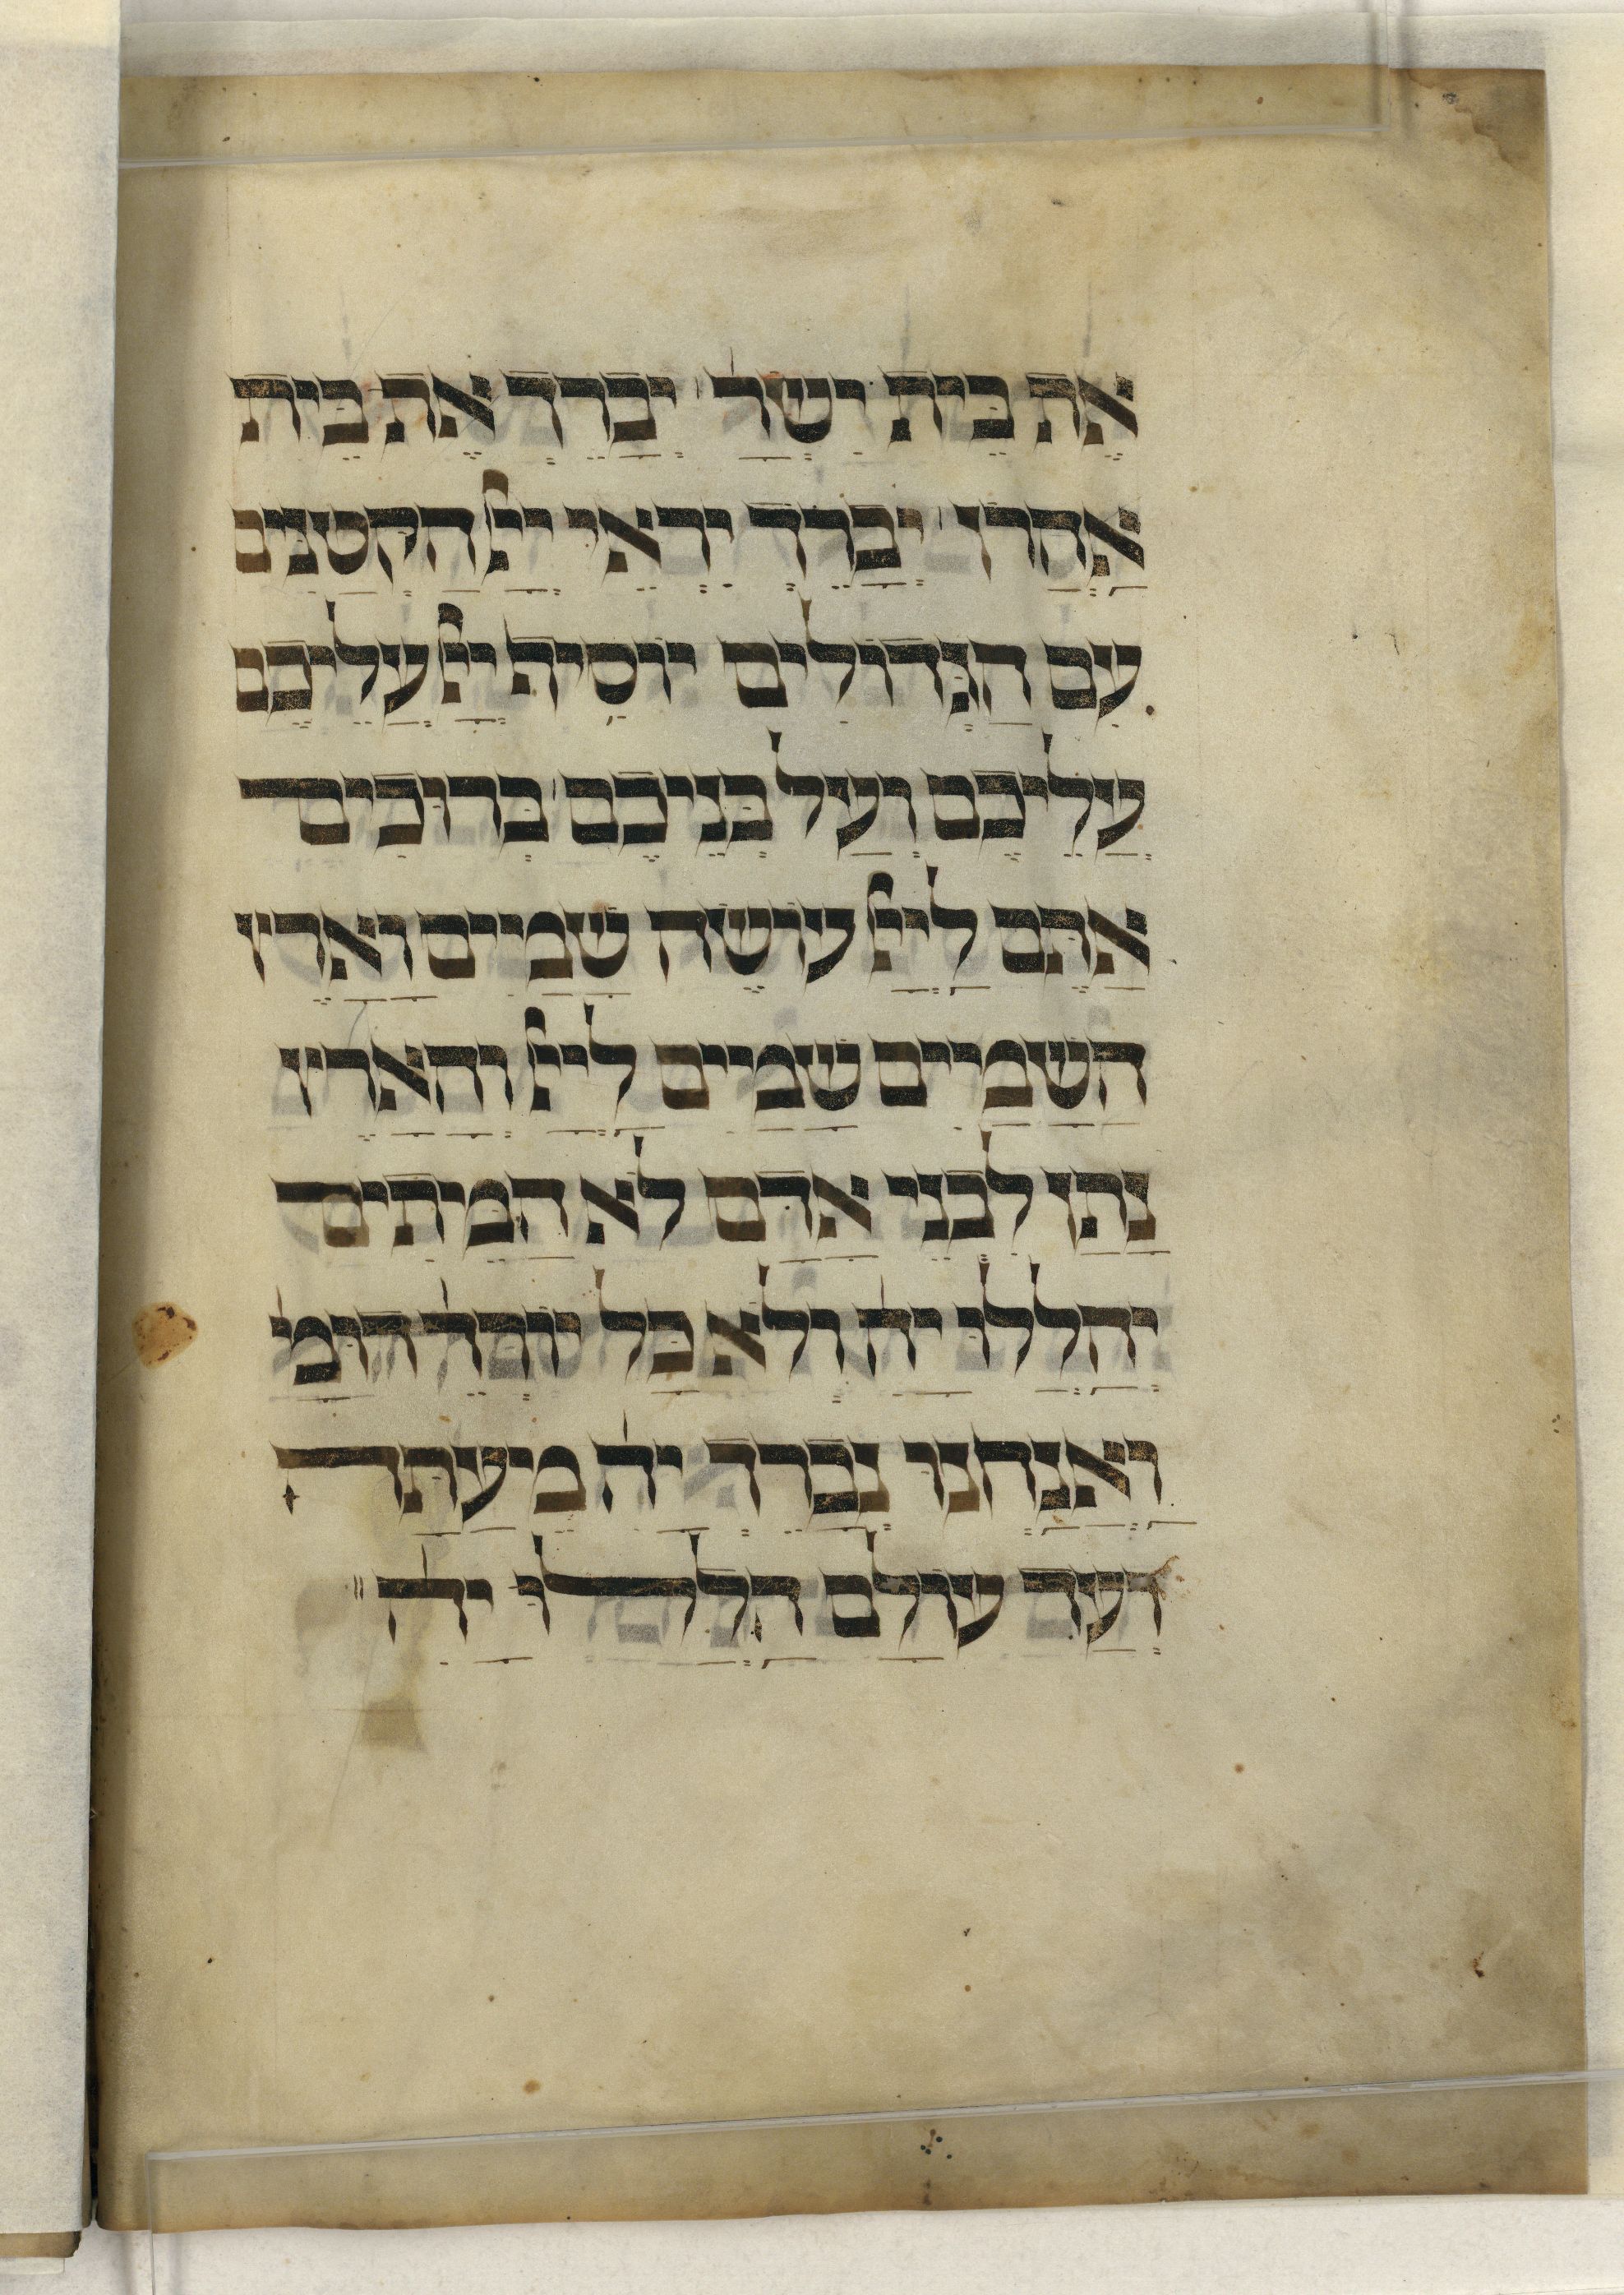 אֶת בֵּית יִשְׂרָ׳ יְבָרֵךְ אֶת בֵּית
אַהֲרֹן׳ יְבָרֵךְ יִרְאֵי יְיָ הַקְּטַנִּים
עִם הַגְּדוֹלִים יוֹסֵף יְיָ עֲלֵיכֶם
עֲלֵיכֶם וְעַל בְּנֵיכֶם׳ בְּרוּכִים
אַתֶּם לַייָ עוֹשֵׂה שָׁמַיִם וָאָרֶץ
הַשָּׁמַיִם שָׁמַיִם לַייָ וְהָאָרֶץ
נָתַן לִבְנֵי אָדָם לֹא הַמֵּיתִים
יְהַלְלוּ יָהּ וְלֹא כָּל יוֹרְדֵי דוּמָ׳
וַאֲנַחְנוּ נְבָרֵךְ יָהּ מֵיעַתָּה
וְעַד עוֹלָם הַלְלוּ יָהּ׃